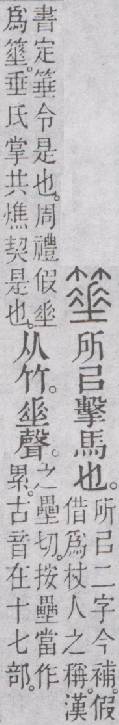 箠
所㠯擊馬也。
所㠯二字今補。假
借爲杖人之稱。漢
書定箠令是也。周禮假𡍮
爲箠。垂氏掌共燋契是也。
从竹。𡍮聲。
之壘切。按壘當作
累。古音在十七部。